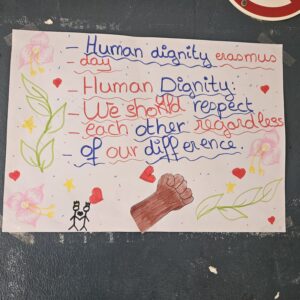 - Human dignity erasmus
day
- Human Dignity:
- We should respect
- each other regardless
- of our difference.